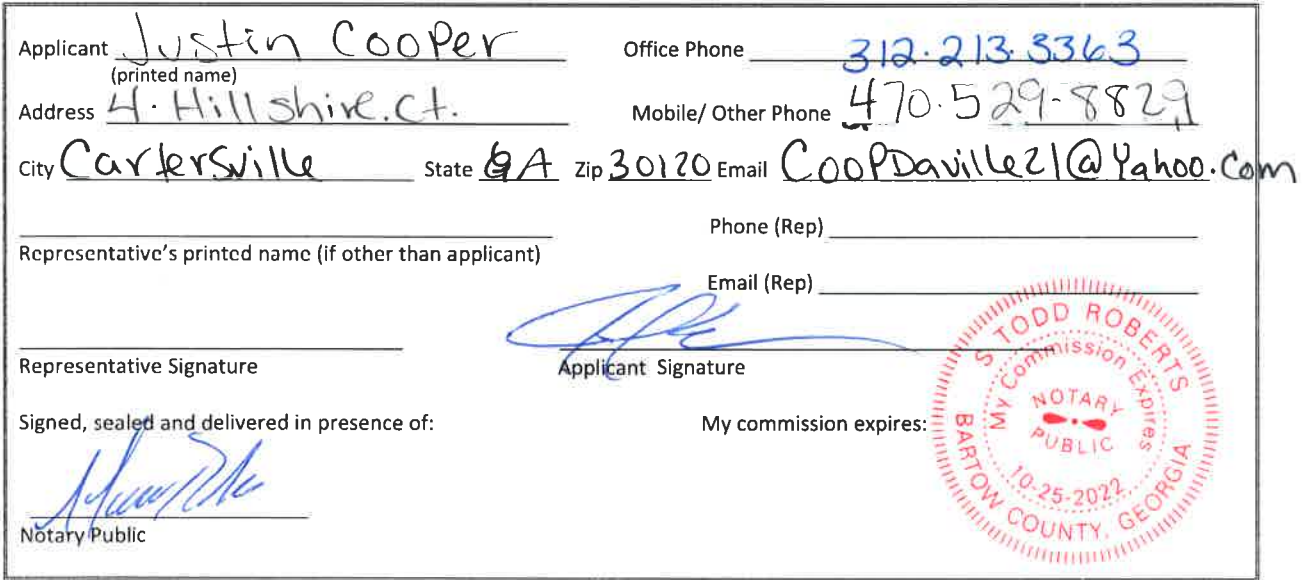 Applicant Justin Cooper Office Phone 312.213.3363
(printed name)
Address 4. Hillshire. Ct. Mobile/ Other Phone 470.529-8829
City Cartersville State GA Zip 30120 Email CoopDaville21@Yahoo.com
Phone (Rep)
Representative's printed name (if other than applicant)
Email (Rep)
Representative Signature Applicant Signature
Signed, sealed and delivered in presence of: My commission expires:
S TODD ROBERTS
My Commission Expires
NOTARY
PUBLIC
10-25-2022
BARTOW COUNTY, GEORGIA
Notary Public